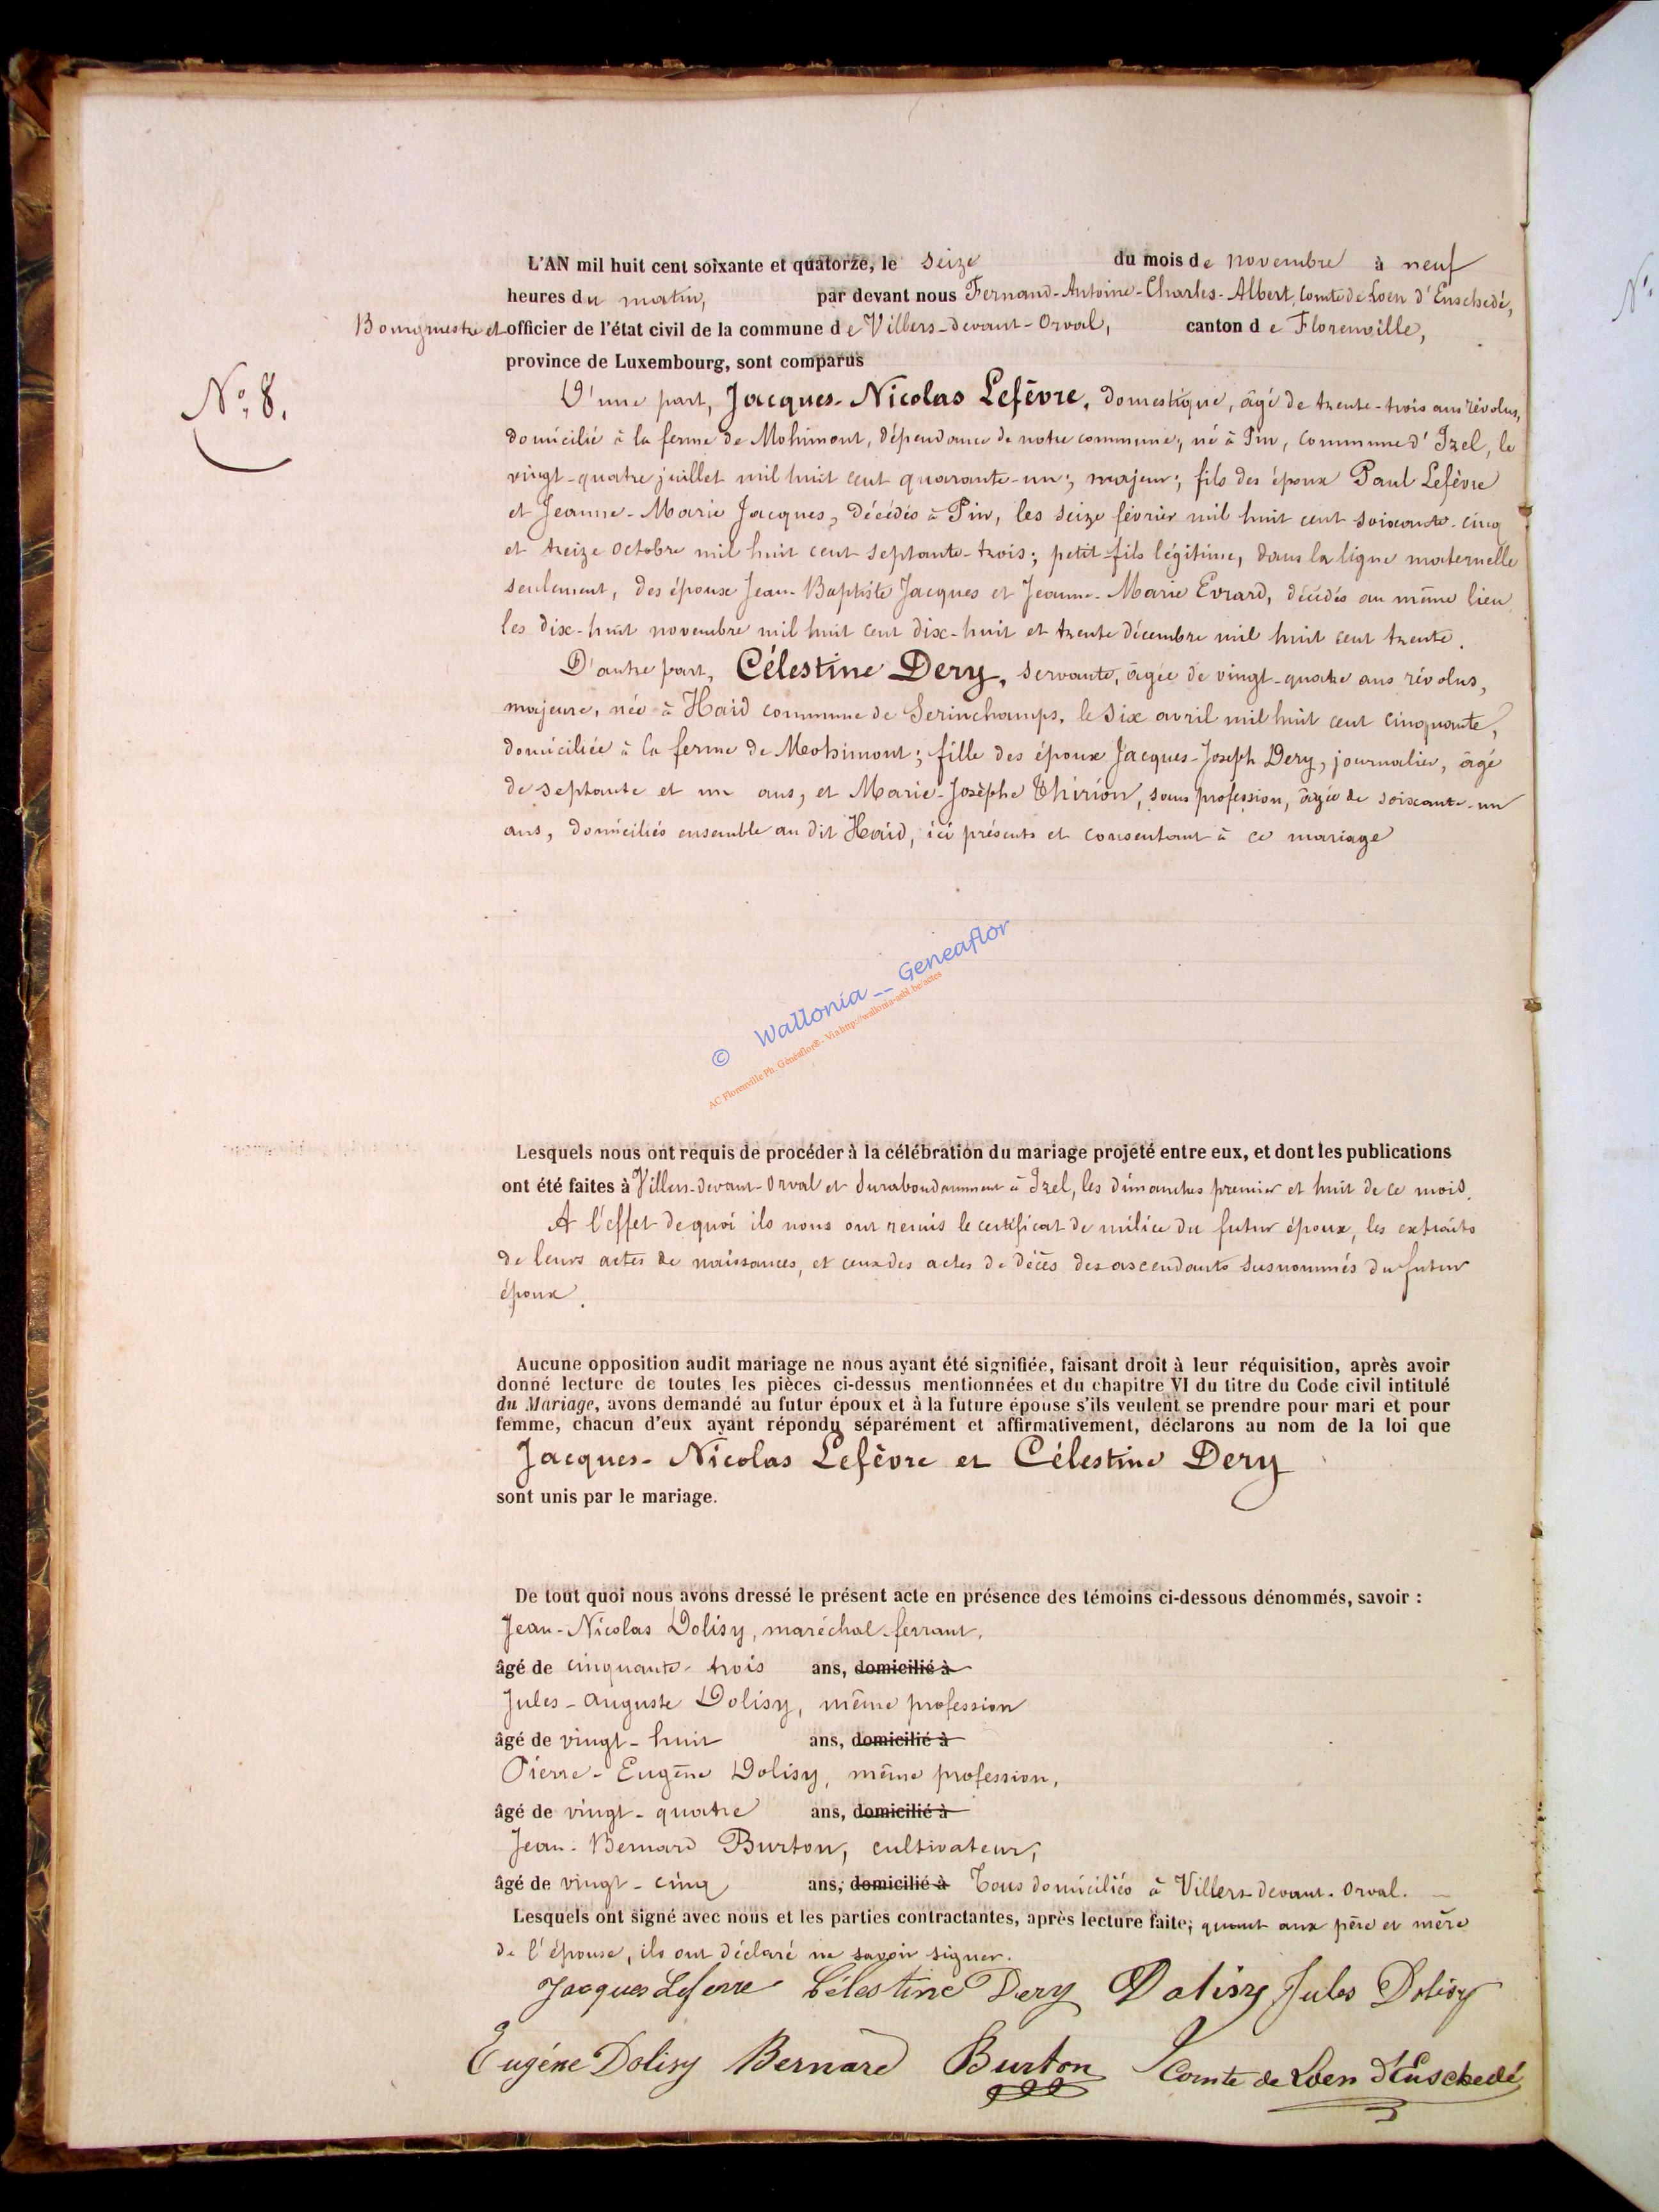 L'AN mil huit cent soixante et quatorze, le seize du mois de novembre à neuf
heures du matin, par devant nous Fernand-Antoine-Charles-Albert, Comte de Loen d'Enschedé,
Bourgmestre et officier de l'état civil de la commune de Villers-devant-Orval, canton de Florenville,
province de Luxembourg, sont comparus
N° 8.
D'une part, Jacques-Nicolas Lefèvre, domestique, âgé de trente-trois ans révolus,
domicilié à la ferme de Mohimont, dépendance de notre commune, né à Pin, commune d'Izel, le
vingt-quatre juillet mil huit cent quarante-un; majeur; fils des époux Paul Lefèvre
et Jeanne-Marie Jacques, décédés à Pin, les seize février mil huit cent soixante-cinq
et treize octobre mil huit cent septante-trois; petit-fils légitime, dans la ligne maternelle
seulement, des époux Jean-Baptiste Jacques et Jeanne-Marie Evrard, décédés au même lieu
les dix-huit novembre mil huit cent dix-huit et trente décembre mil huit cent trente.
D'autre part, Célestine Dery, servante, âgée de vingt-quatre ans révolus,
majeure, née à Haid commune de Serinchamps, le six avril mil huit cent cinquante,
domiciliée à la ferme de Mohimont; fille des époux Jacques-Joseph Dery, journalier, âgé
de septante et un ans, et Marie-Josèphe Thirion, sans profession, âgée de soixante-un
ans, domiciliés ensemble au dit Haid, ici présents et consentant à ce mariage
© Wallonia __ Geneaflor
AC Florenville Ph. Généaflor® - Via http://wallonia-asbl.be/actes
Lesquels nous ont requis de procéder à la célébration du mariage projeté entre eux, et dont les publications
ont été faites à Villers-devant-Orval et surabondamment à Izel, les dimanches premier et huit de ce mois.
A l'effet de quoi ils nous ont remis le certificat de milice du futur époux, les extraits
de leurs actes de naissances, et ceux des actes de décès des ascendants susnommés du futur
époux.
Aucune opposition audit mariage ne nous ayant été signifiée, faisant droit à leur réquisition, après avoir
donné lecture de toutes les pièces ci-dessus mentionnées et du chapitre VI du titre du Code civil intitulé
du Mariage, avons demandé au futur époux et à la future épouse s'ils veulent se prendre pour mari et pour
femme, chacun d'eux ayant répondu séparément et affirmativement, déclarons au nom de la loi que
Jacques-Nicolas Lefèvre et Célestine Dery
sont unis par le mariage.
De tout quoi nous avons dressé le présent acte en présence des témoins ci-dessous dénommés, savoir :
Jean-Nicolas Dolisy, maréchal-ferrant,
âgé de cinquante-trois ans, domicilié à
Jules-Auguste Dolisy, même profession
âgé de vingt-huit ans, domicilié à
Pierre-Eugène Dolisy, même profession,
âgé de vingt-quatre ans, domicilié à
Jean-Bernard Burton, cultivateur,
âgé de vingt-cinq ans, domicilié à Tous domiciliés à Villers-devant-Orval.
Lesquels ont signé avec nous et les parties contractantes, après lecture faite; quant aux père et mère
de l'épouse, ils ont déclaré ne savoir signer.
Jacques Lefevre Célestine Dery Dolisy Jules Dolisy
Eugéne Dolisy Bernard Burton Comte de Loen d'Enschedé
N°